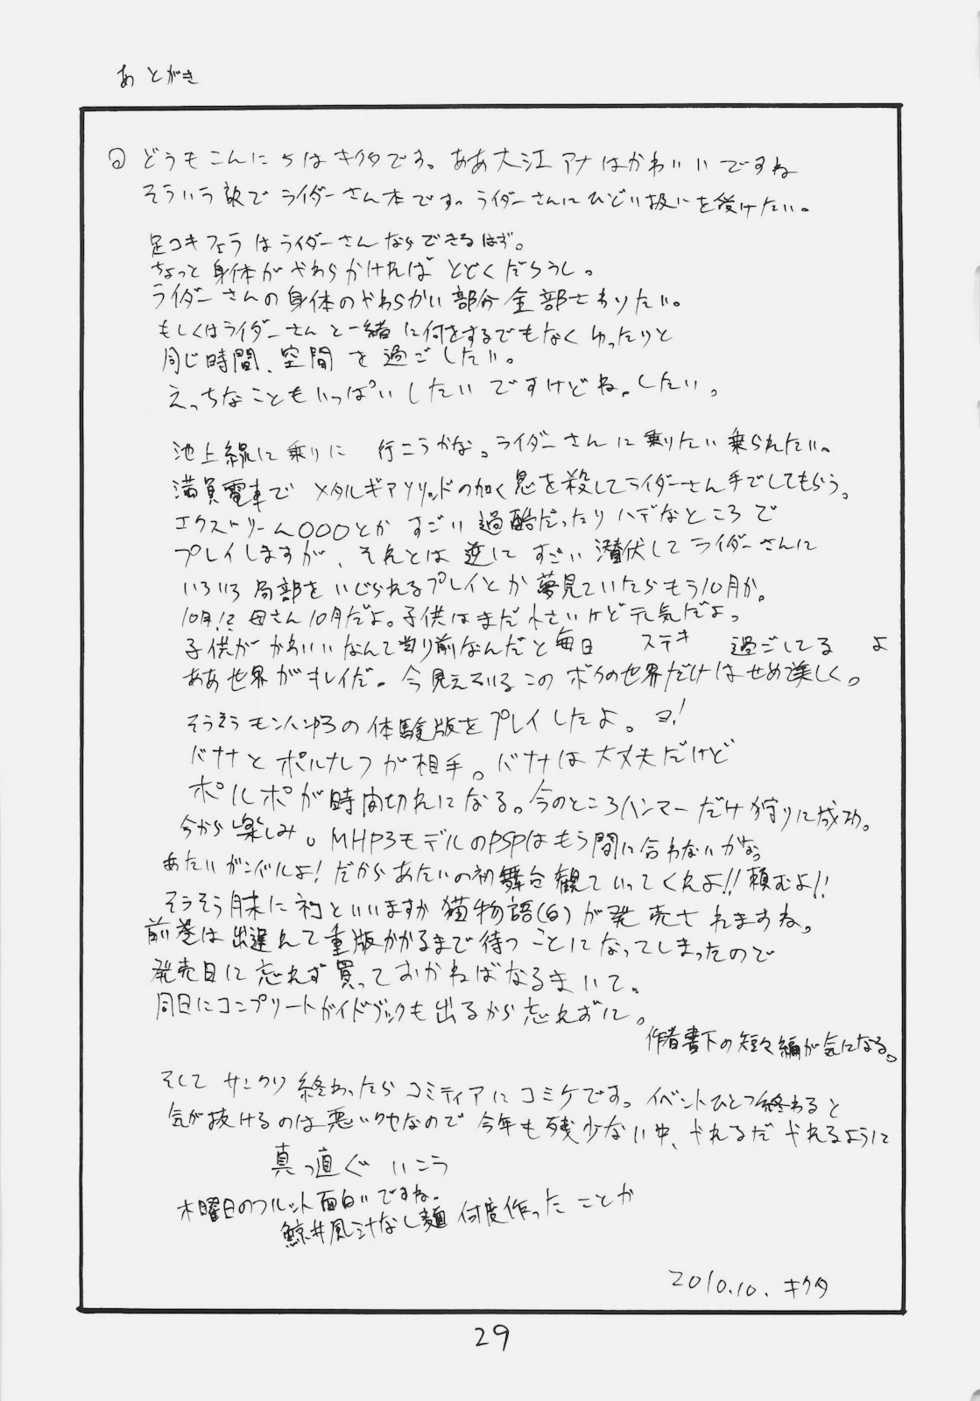 あとがき
どうもこんにちはキクタです。ああ大江アナはかわいいですね
そういう訳でライダーさん本です。ライダーさんにひどい扱いを受けたい。
足コキフェラはライダーさんならできるはず。
ちょっと身体がやわらかければとどくだろうし。
ライダーさんの身体のやわらかい部分全部さわりたい。
もしくはライダーさんと一緒に何をするでもなくゆったりと
同じ時間、空間を過ごしたい。
えっちなこともいっぱいしたいですけどね。したい。
池上線に乗りに 行こうかな。ライダーさんに乗りたい乗られたい。
満員電車でメタルギアソリッドの如く息を殺してライダーさん手でしてもらう。
エクストリーム○○○とかすごい過酷だったりハデなところで
プレイしますが、それとは逆にすごい潜伏してライダーさんに
いろいろ局部をいじられるプレイとか夢見ていたらもう10月か。
10月!? 母さん10月だよ。子供はまだ小さいけど元気だよ。
子供がかわいいなんて当り前なんだと毎日 ステキ 過ごしてる よ
ああ世界がキレイだ。今見えているこのボクの世界だけはせめ美しく。
そうそうモンハンゆうの体験版をプレイしたよ。ヨ!
バナナとポルナレフが相手。バナナは大丈夫だけど
ポルポが時間切れになる。今のところハンマーだけ狩りに成功。
今から楽しみ。MHP3モデルのPSPはもう間に合わないかなっ
あたいガンバルよ!だからあたいの初舞台観ていってくれよ!!頼むよ!!
そうそう月末に初といいますか猫物語(白)が発売されますね。
前巻は出遅れて重版かかるまで待つことになってしまったので
発売日に忘れず買っておかねばなるまいて。
同日にコンプリートガイドブックも出るから忘れずに。
作者書下の短々編が気になる。
そしてサンクリ終わったらコミティアにコミケです。イベントひとつ終わると
気が抜けるのは悪いクセなので今年も残少ない中、やれるだやれるように
真っ直ぐいこう
木曜日のフルット面白いですね。
鯨井風汁なし麺何度作ったことか
2010.10. キクタ
29